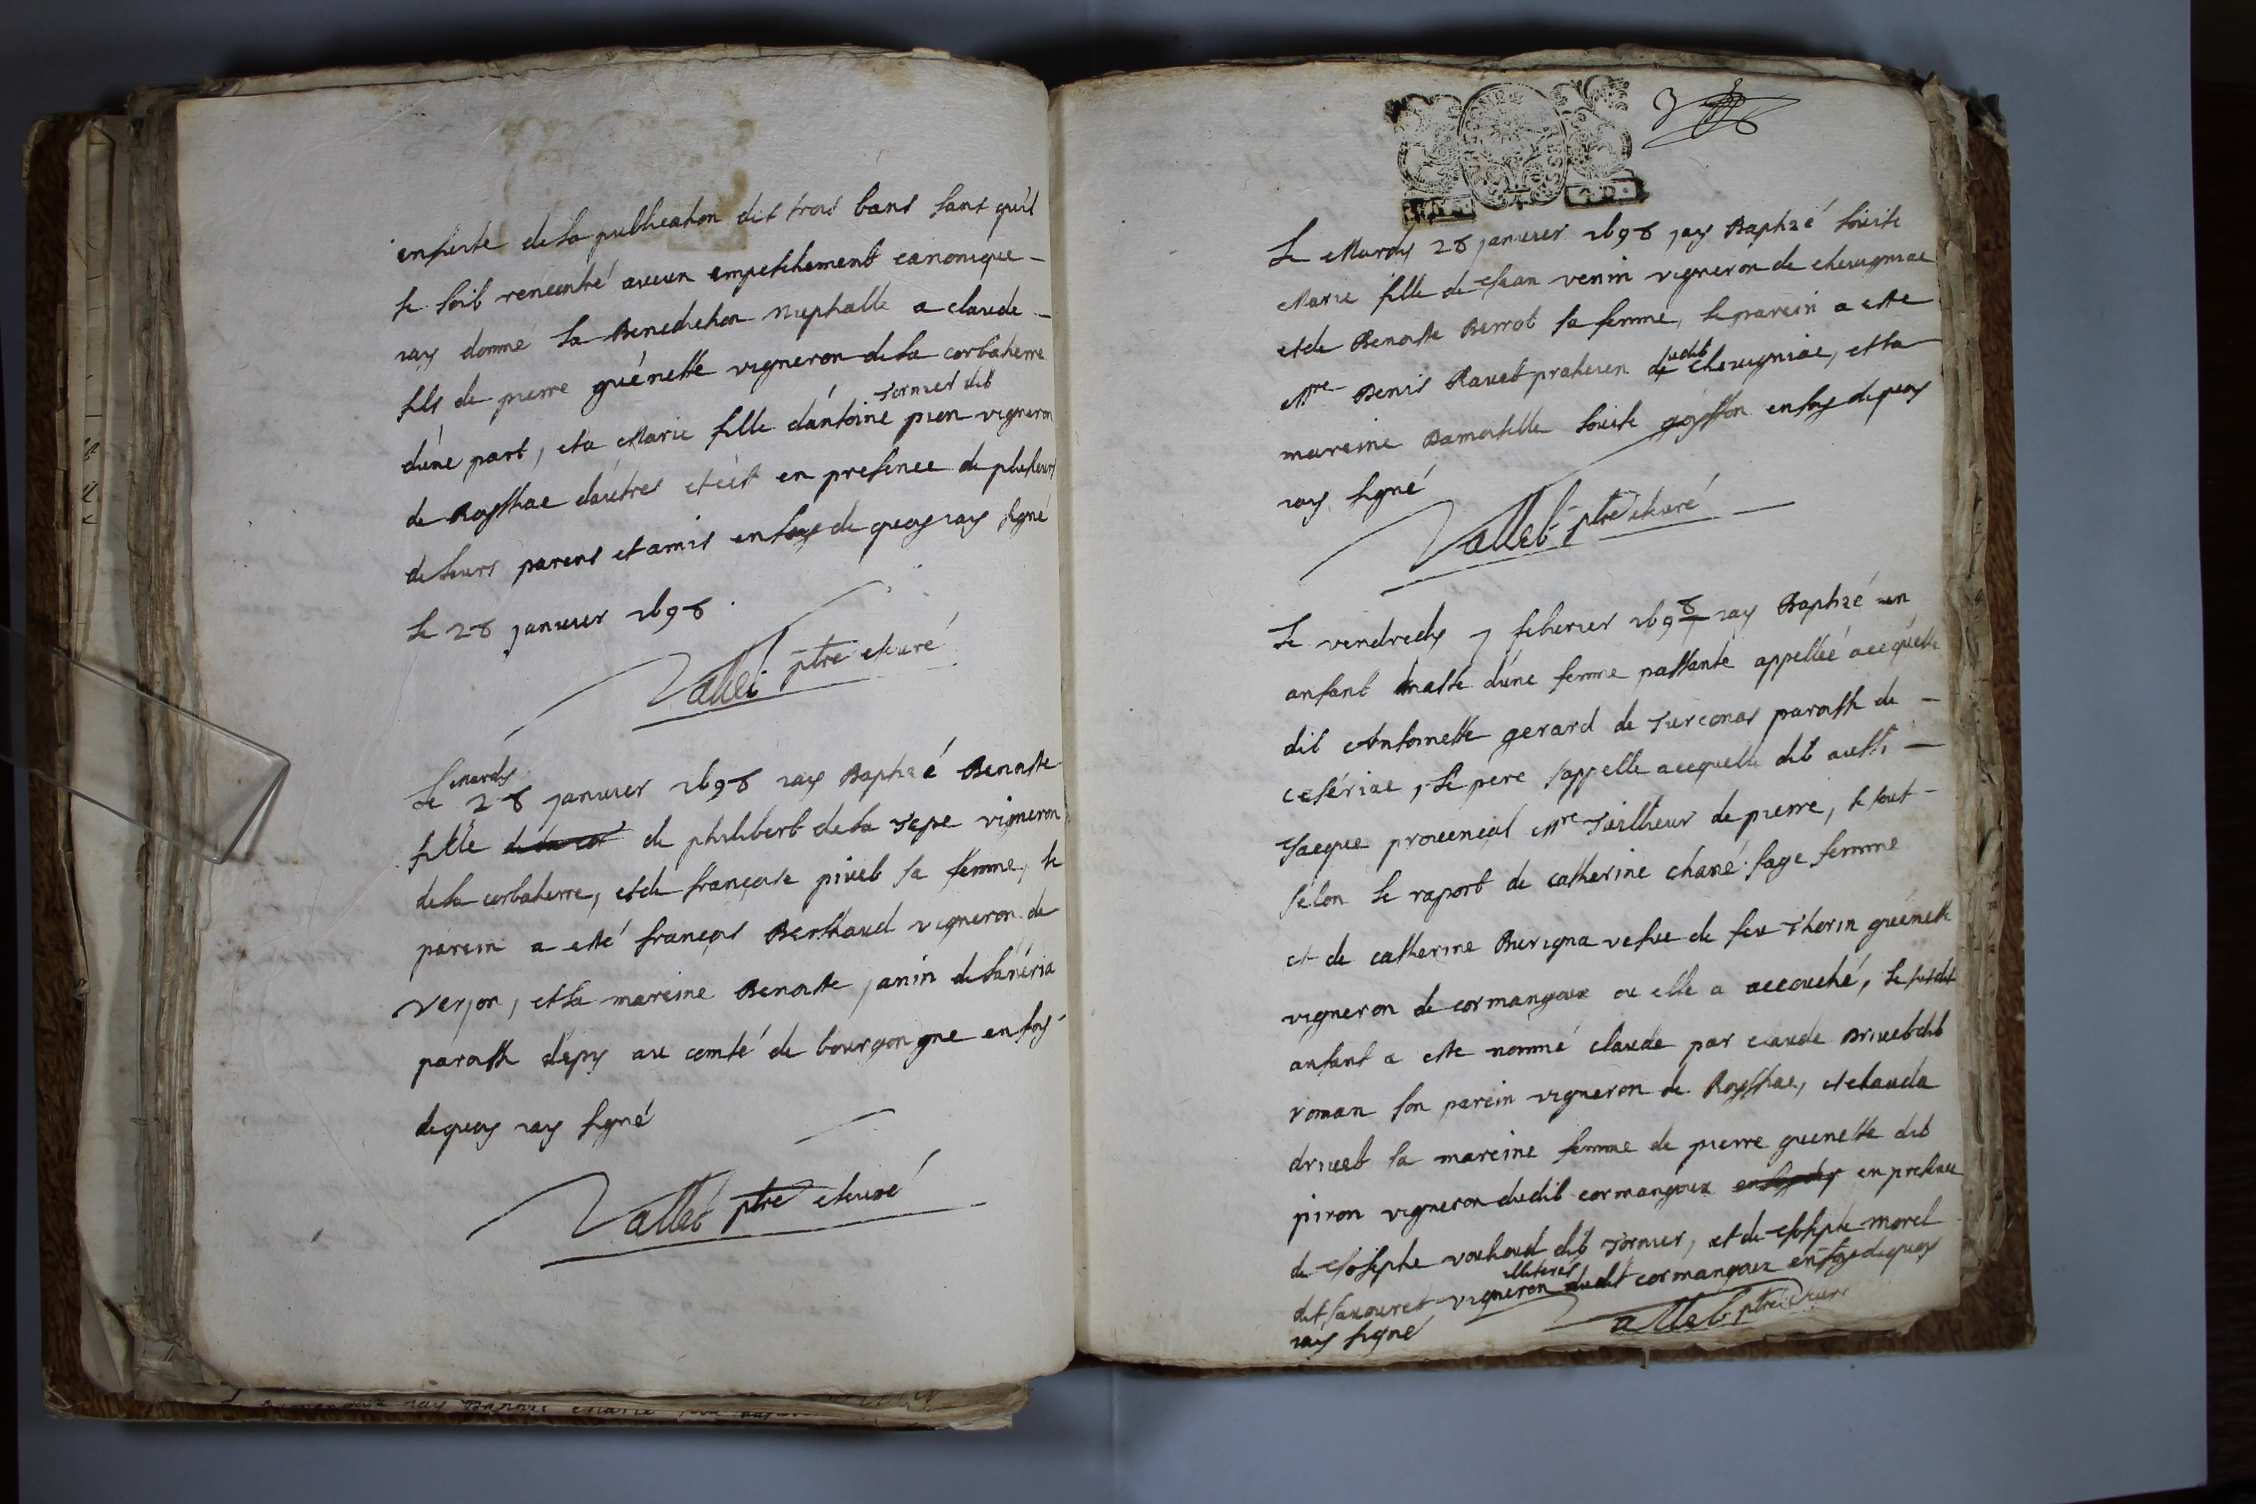 ensuite de la publication des trois bans sans qu'il
se soit rencontré aucun empeschement canonique
iay donné la Benediction nuptialle a claude
fils de pierre guénette vigneron de la corbatiere
d'une part, et a Marie fille d'antoine pion vigneron
Tornier dit
de Royssiac d'autres et cet en presence de plusieurs
de leurs parens et amis en foy de quoy iay signé
le 28 janvier 1698.
Vallet ptre et curé
Le mardy 28 janvier 1698 iay Baptisé Benoiste
fille de philibert de la Tepe vigneron
de la corbatiere, et de françoise pivet sa femme, le
parein a esté françois Berthaud vigneron de
verjon, et la mareine Benoiste janin de
paroisse d'epy au comté de bourgongne en foy
de quoy iay signé
Vallet ptre et curé
3
Le Mardy 28 janvier 1698 jay Baptisé Louise
Marie fille de Jean venin vigneron de chevigniac
et de Benoiste Berrot sa femme, le parein a este
Mre Denis Ravet praticien dudit chevigniac, et la
mareine Damoiselle Louise goysson en foy de quoy
iay signé
Vallet ptre et curé
Le vendredy 7 febvrier 1698 iay Baptisé un
enfant masle d'une femme passante appellée acequette
dit Antoinette gerard de Turconas paroisse de
ceseriac, le pere s'appelle acequette dit aussi
Jacque provencal Mre Tailleur de pierre, le tout
selon le raport de catherine chané sage femme
et de catherine Buvigna vefve de feu Thorin guénette
vigneron de cormangoux ou elle a accouché, le susdit
enfant a este nommé claude par claude Drivet dit
roman son parein vigneron de Royssiac, et clauda
drivet sa mareine femme de pierre guenette dit
piron vigneron dudit cormangoux en presence
de Josephe vouhoud dit Tornier, et de Josephe morel
illiterés
dit savouret vigneron dudit cormangoux en foy de quoy
iay signé
Vallet ptre et curé